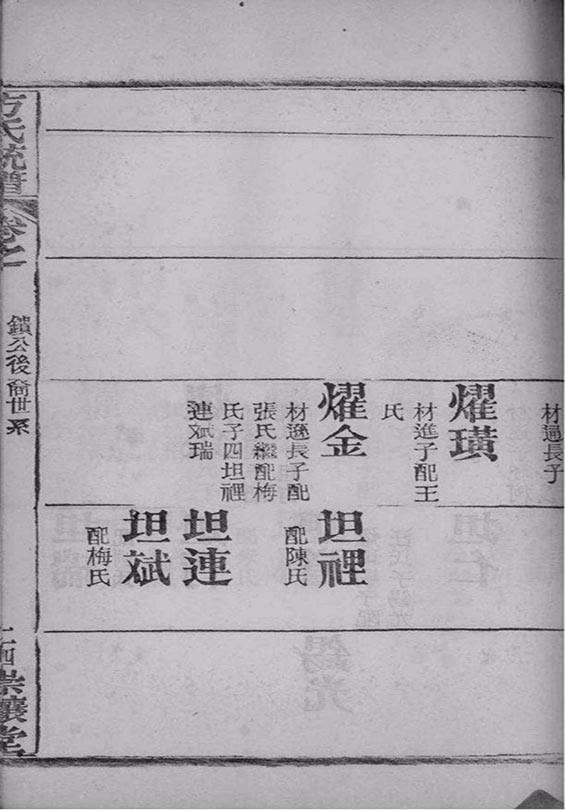 材過長子
燿璜
材進子配王
氏
燿金
材遜長子配
張氏繼配梅
氏子四坦裡
連斌瑞
坦裡
配陳氏
坦連
坦斌
配梅氏
方氏統譜
卷之
鎮公後裔世系
崇讓堂